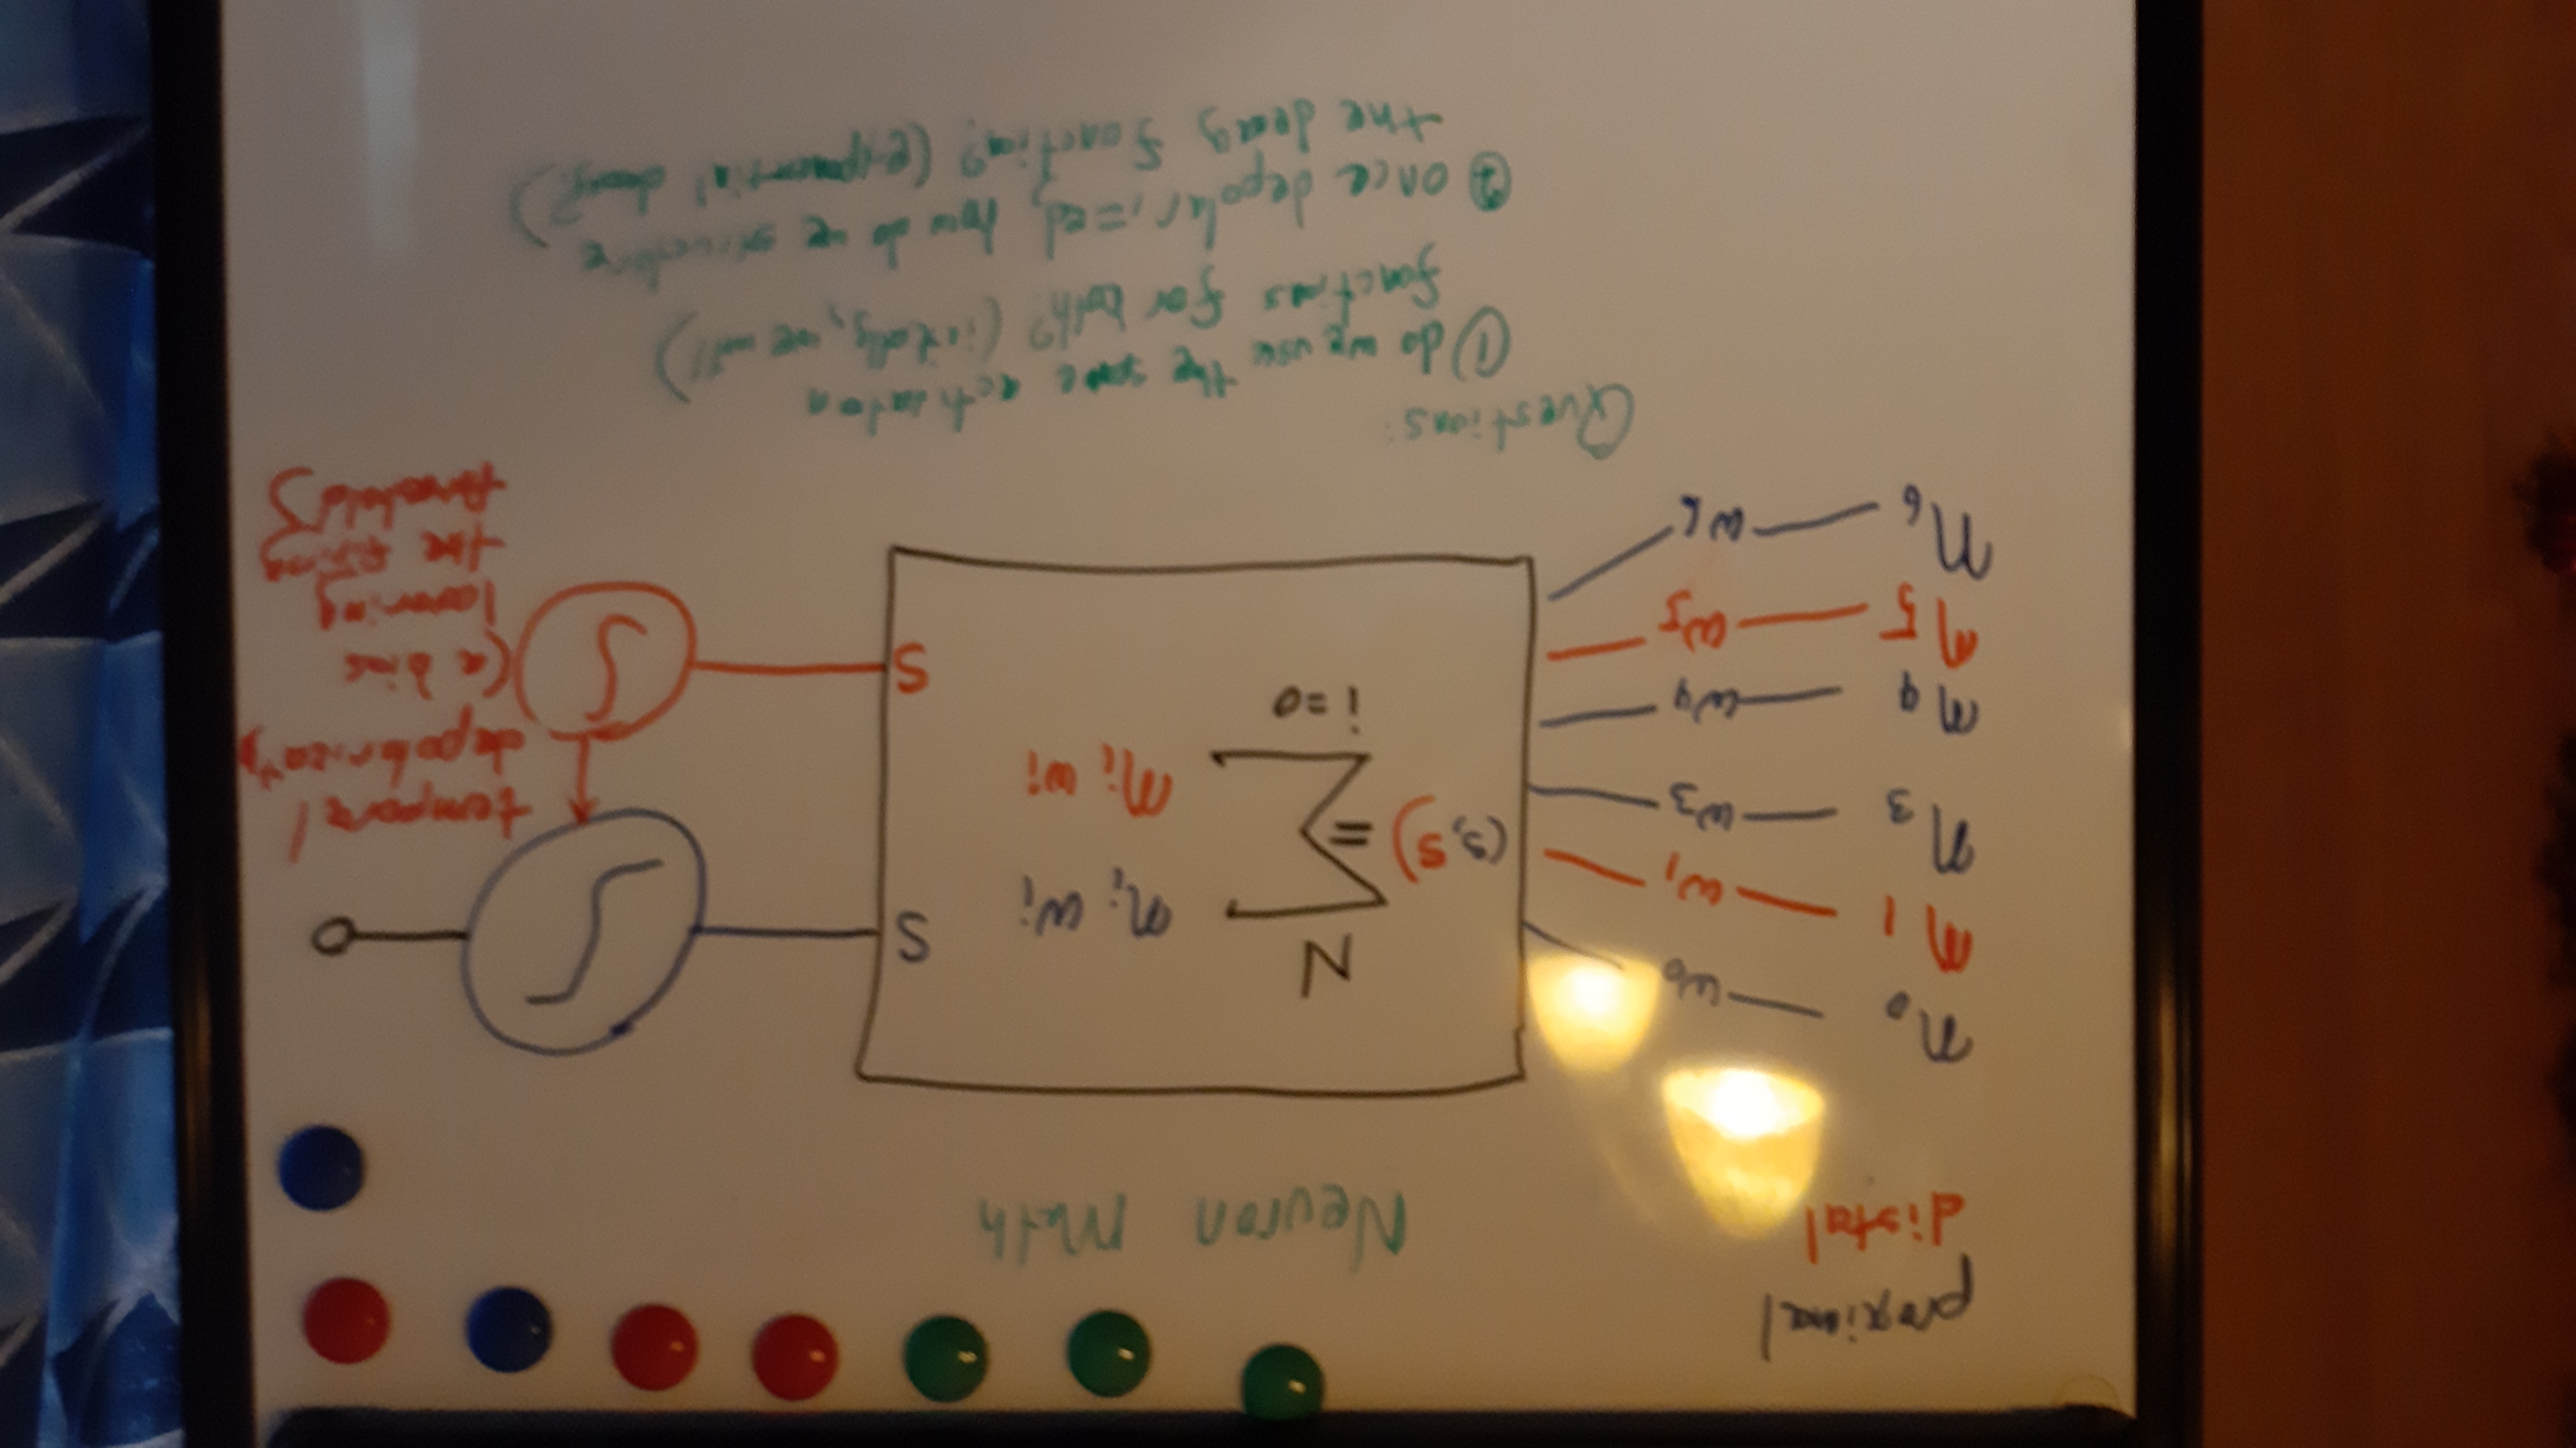 proximal
distal
Neuron Math
n0 — w0
n1 — w1
n3 — w3
n4 — w4
n5 — w5
n6 — w6
N
(s, s) = Σ ni wi
ni wi
i=0
S
S
temporal
depolarizat
(a bias
lowering
the firing
threshold)
Questions:
① do we use the same activation
functions for both? (initally, we will)
② once depolarized, how do we structure
the decay function? (exponential decay?)